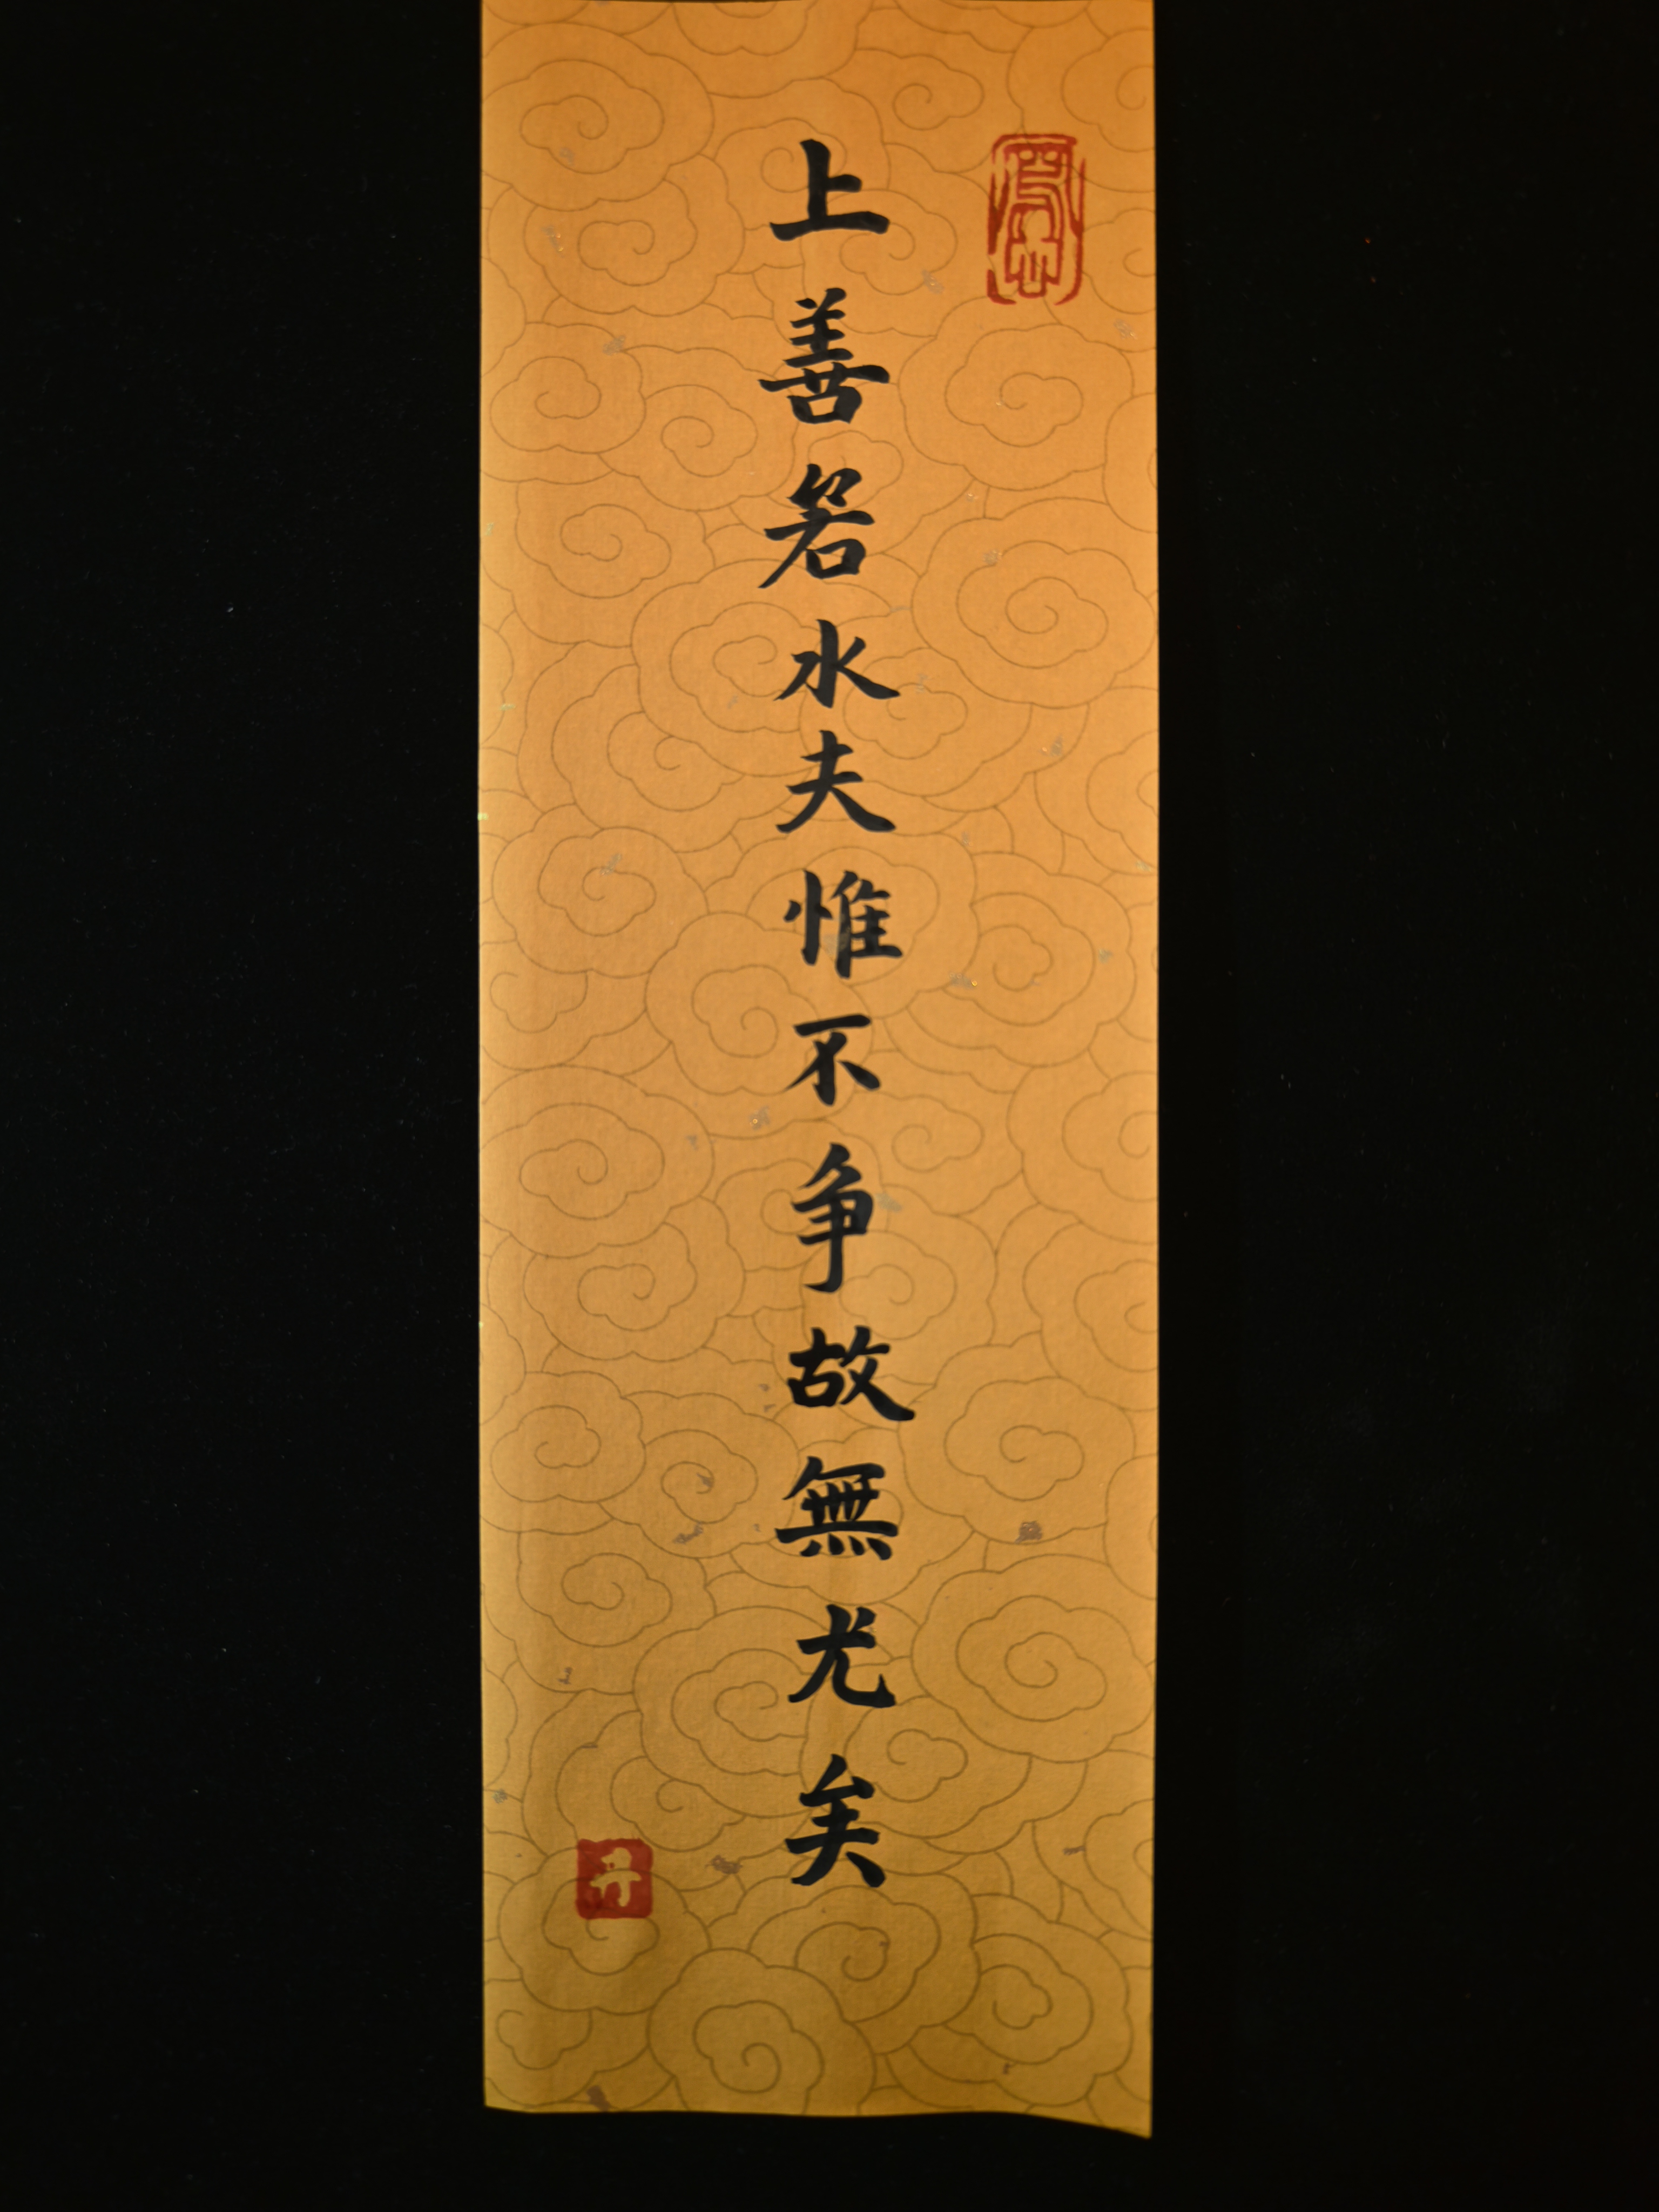 上善若水夫惟不争故無尤矣